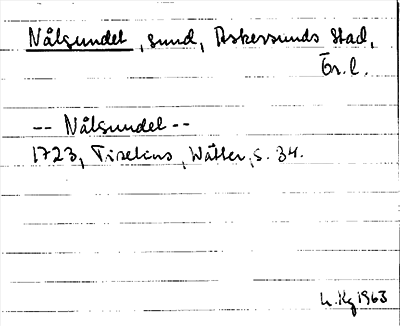 Nålsundet, sund, Askersunds stad,
Ör.l.
-- Nålsundet --
1723, Tiselius, Wätter, s. 34.
L.Kg 1963